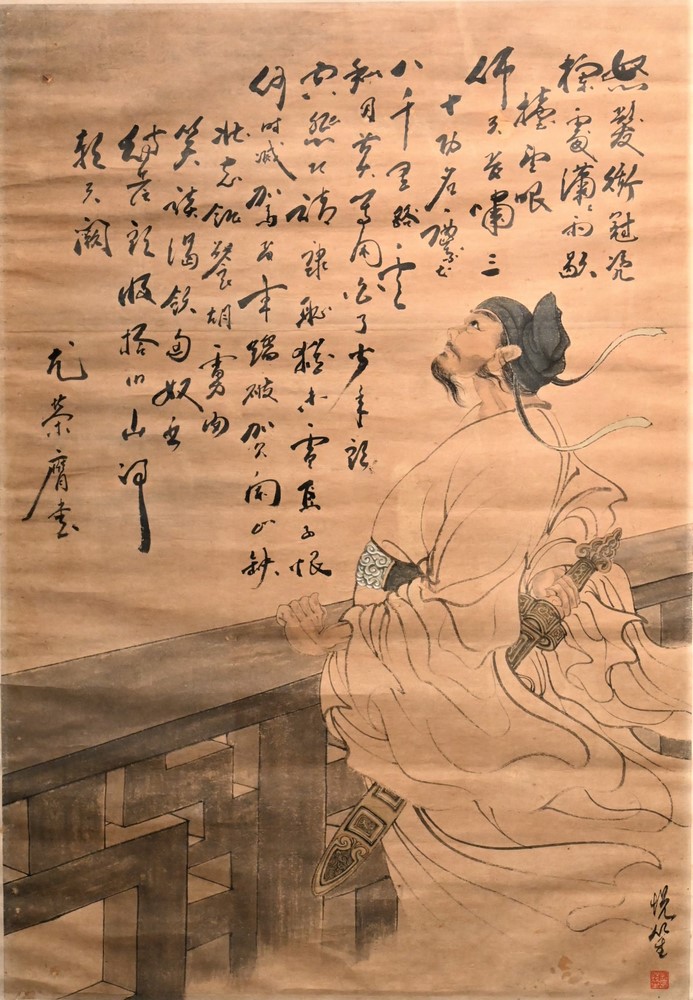 怒髮衝冠凭
欄處瀟瀟雨歇
擡望眼
仰天長嘯三
十功名塵與土
八千里路雲
和月莫等閑白了少年頭
空悲切靖康恥猶未雪臣子恨
何時滅駕長車踏破賀蘭山缺
壯志飢餐胡虜肉
笑談渴飲匈奴血
待從頭收拾旧山河
朝天闕
尤榮膺書
悦笙